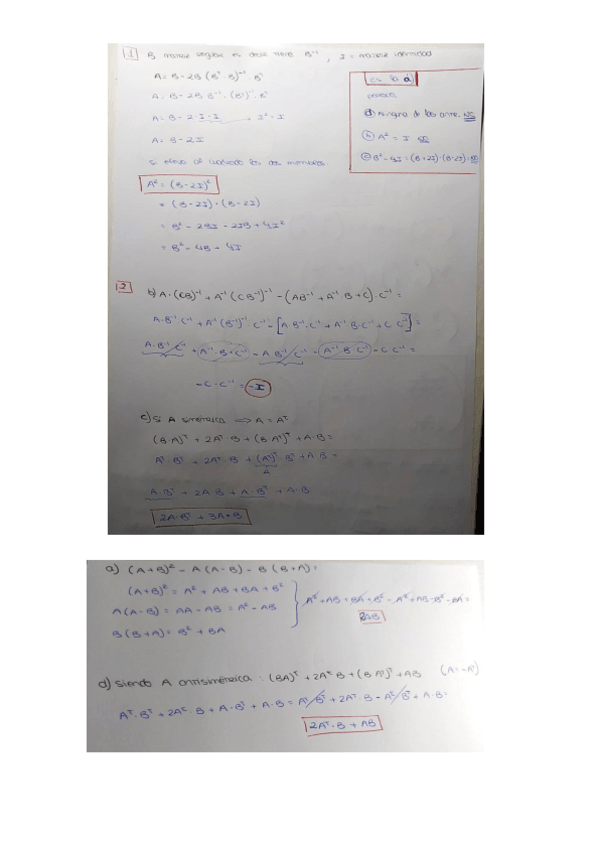 1 B matriz regular es decir tiene B⁻¹, I = matriz identidad
A = B - 2B (Bᵗ B)⁻¹ Bᵗ
A = B - 2B B⁻¹ · (Bᵗ)⁻¹ · Bᵗ
A = B - 2 I · I I² = I
A = B - 2I
Si elevo al cuadrado los dos miembros
A² = (B - 2I)²
= (B - 2I) · (B - 2I)
= B² - 2BI - 2IB + 4I²
= B² - 4B + 4I
es la d)
d) Ninguna de las ante.
b) A² = I NO
c) B² - 4I = (B + 2I) · (B - 2I) NO
2
b) A · (CB)⁻¹ + A⁻¹ (CB⁻¹)⁻¹ - (AB⁻¹ + A⁻¹ B + C) · C⁻¹ =
A · B⁻¹ C⁻¹ + A⁻¹ (B⁻¹)⁻¹ · C⁻¹ - [A · B⁻¹ · C⁻¹ + A⁻¹ B · C⁻¹ + C C⁻¹] =
A · B⁻¹ C⁻¹ + A⁻¹ · B · C⁻¹ - A B⁻¹ C⁻¹ - A⁻¹ B · C⁻¹ - C C⁻¹ =
- C · C⁻¹ = -I
c) Si A simétrica ⟹ A = Aᵀ
(B · A)ᵀ + 2Aᵀ · B + (B · Aᵀ)ᵀ + A · B =
Aᵀ · Bᵀ + 2Aᵀ · B + (Aᵀ)ᵀ · Bᵀ + A · B =
A
A · Bᵀ + 2A · B + A · Bᵀ + A · B
2A · Bᵀ + 3A · B
a) (A + B)² - A (A - B) - B (B + A) =
(A + B)² = A² + AB + BA + B²
A (A - B) = AA - AB = A² - AB
B (B + A) = B² + BA
A² + AB + BA + B² - A² + AB - B² - BA =
2AB
d) siendo A antisimétrica : (BA)ᵀ + 2Aᵀ B + (B Aᵀ)ᵀ + AB (A = -Aᵀ)
Aᵀ · Bᵀ + 2Aᵀ · B + A · Bᵀ + A · B = Aᵀ Bᵀ + 2Aᵀ · B - Aᵀ Bᵀ + A · B =
2Aᵀ · B + AB